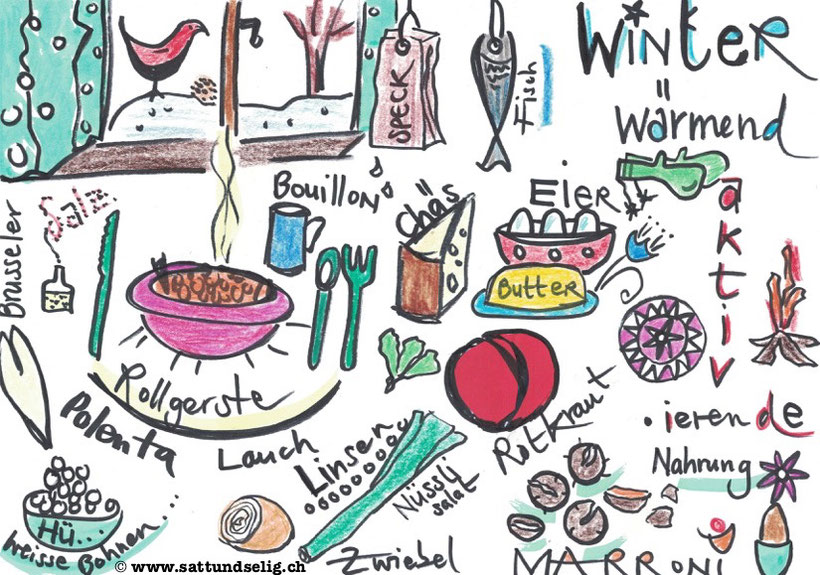 WINTER
wärmend
aktiv
ierende
Nahrung
SPECK
Fisch
Bouillon
Chäs
EIER
Butter
Salz
Brüsseler
Rollgerste
Polenta
Lauch
Linsen
Nüssli
salat
Rotkraut
Zwiebel
MARRONI
Hü...
weisse Bohnen...
© www.sattundselig.ch